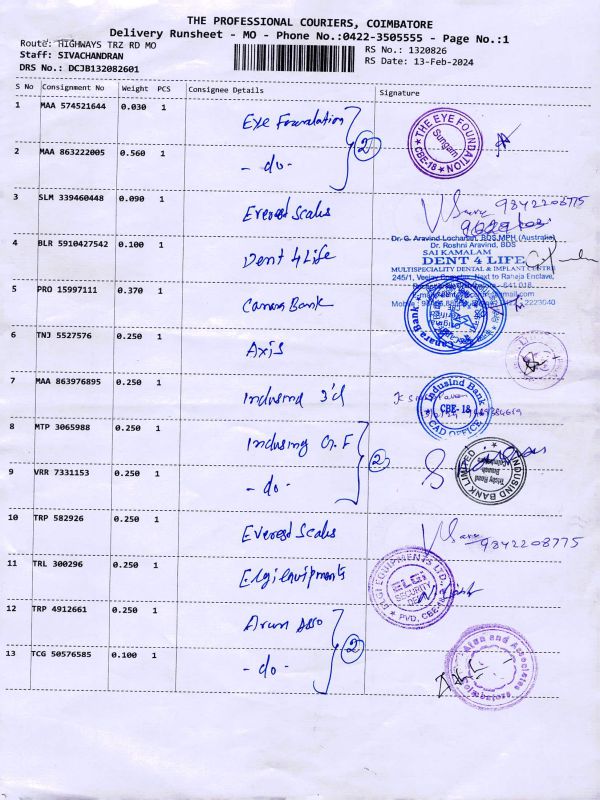 THE PROFESSIONAL COURIERS, COIMBATORE
Delivery Runsheet - MO - Phone No.:0422-3505555 - Page No.:1
Route: HIGHWAYS TRZ RD MO
RS No.: 1320826
Staff: SIVACHANDRAN
RS Date: 13-Feb-2024
DRS No.: DCJB132082601
S No Consignment No Weight PCS Consignee Details Signature
1 MAA 574521644 0.030 1 Eye Foundation
THE EYE FOUNDATION Sungam CBE-18
2 MAA 863222005 0.560 1 - do - 2
3 SLM 339460448 0.090 1 Everest Scales 9842208775
4 BLR 5910427542 0.100 1 Dent 4 Life
Dr. G. Aravind Locharan, BDS,MPH (Australia)
Dr. Roshni Aravind, BDS
SAI KAMALAM
DENT 4 LIFE
MULTISPECIALITY DENTAL & IMPLANT CENTRE
245/1, Veejay Complex, Next to Raheja Enclave,
641 018.
5 PRO 15997111 0.370 1 Canara Bank
Canara Bank
6 TNJ 5527576 0.250 1 Axis
7 MAA 863976895 0.250 1 Indusind
IndusInd Bank CBE-18 CAD OFFICE
8 MTP 3065988 0.250 1 Indusind
INDUSIND BANK LIMITED
9 VRR 7331153 0.250 1 - do - 2
10 TRP 582926 0.250 1 Everest Scales 9842208775
11 TRL 300296 0.250 1 Elgi equipments
ELGI EQUIPMENTS LTD., ELGi SECURITY PVD, CBE
12 TRP 4912661 0.250 1 Arun Asso
13 TCG 50576585 0.100 1 - do - 2
and Associates